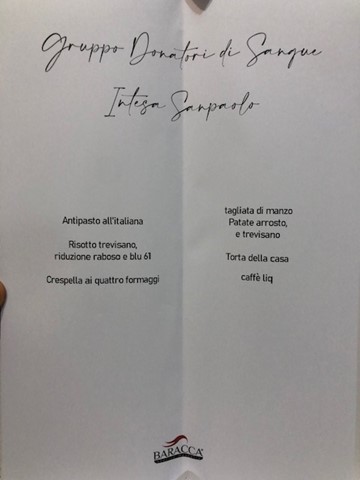 Gruppo Donatori di Sangue
Intesa Sanpaolo
Antipasto all'italiana
Risotto trevisano,
riduzione raboso e blu 61
Crespella ai quattro formaggi
tagliata di manzo
Patate arrosto,
e trevisano
Torta della casa
caffè liq
BARACCA